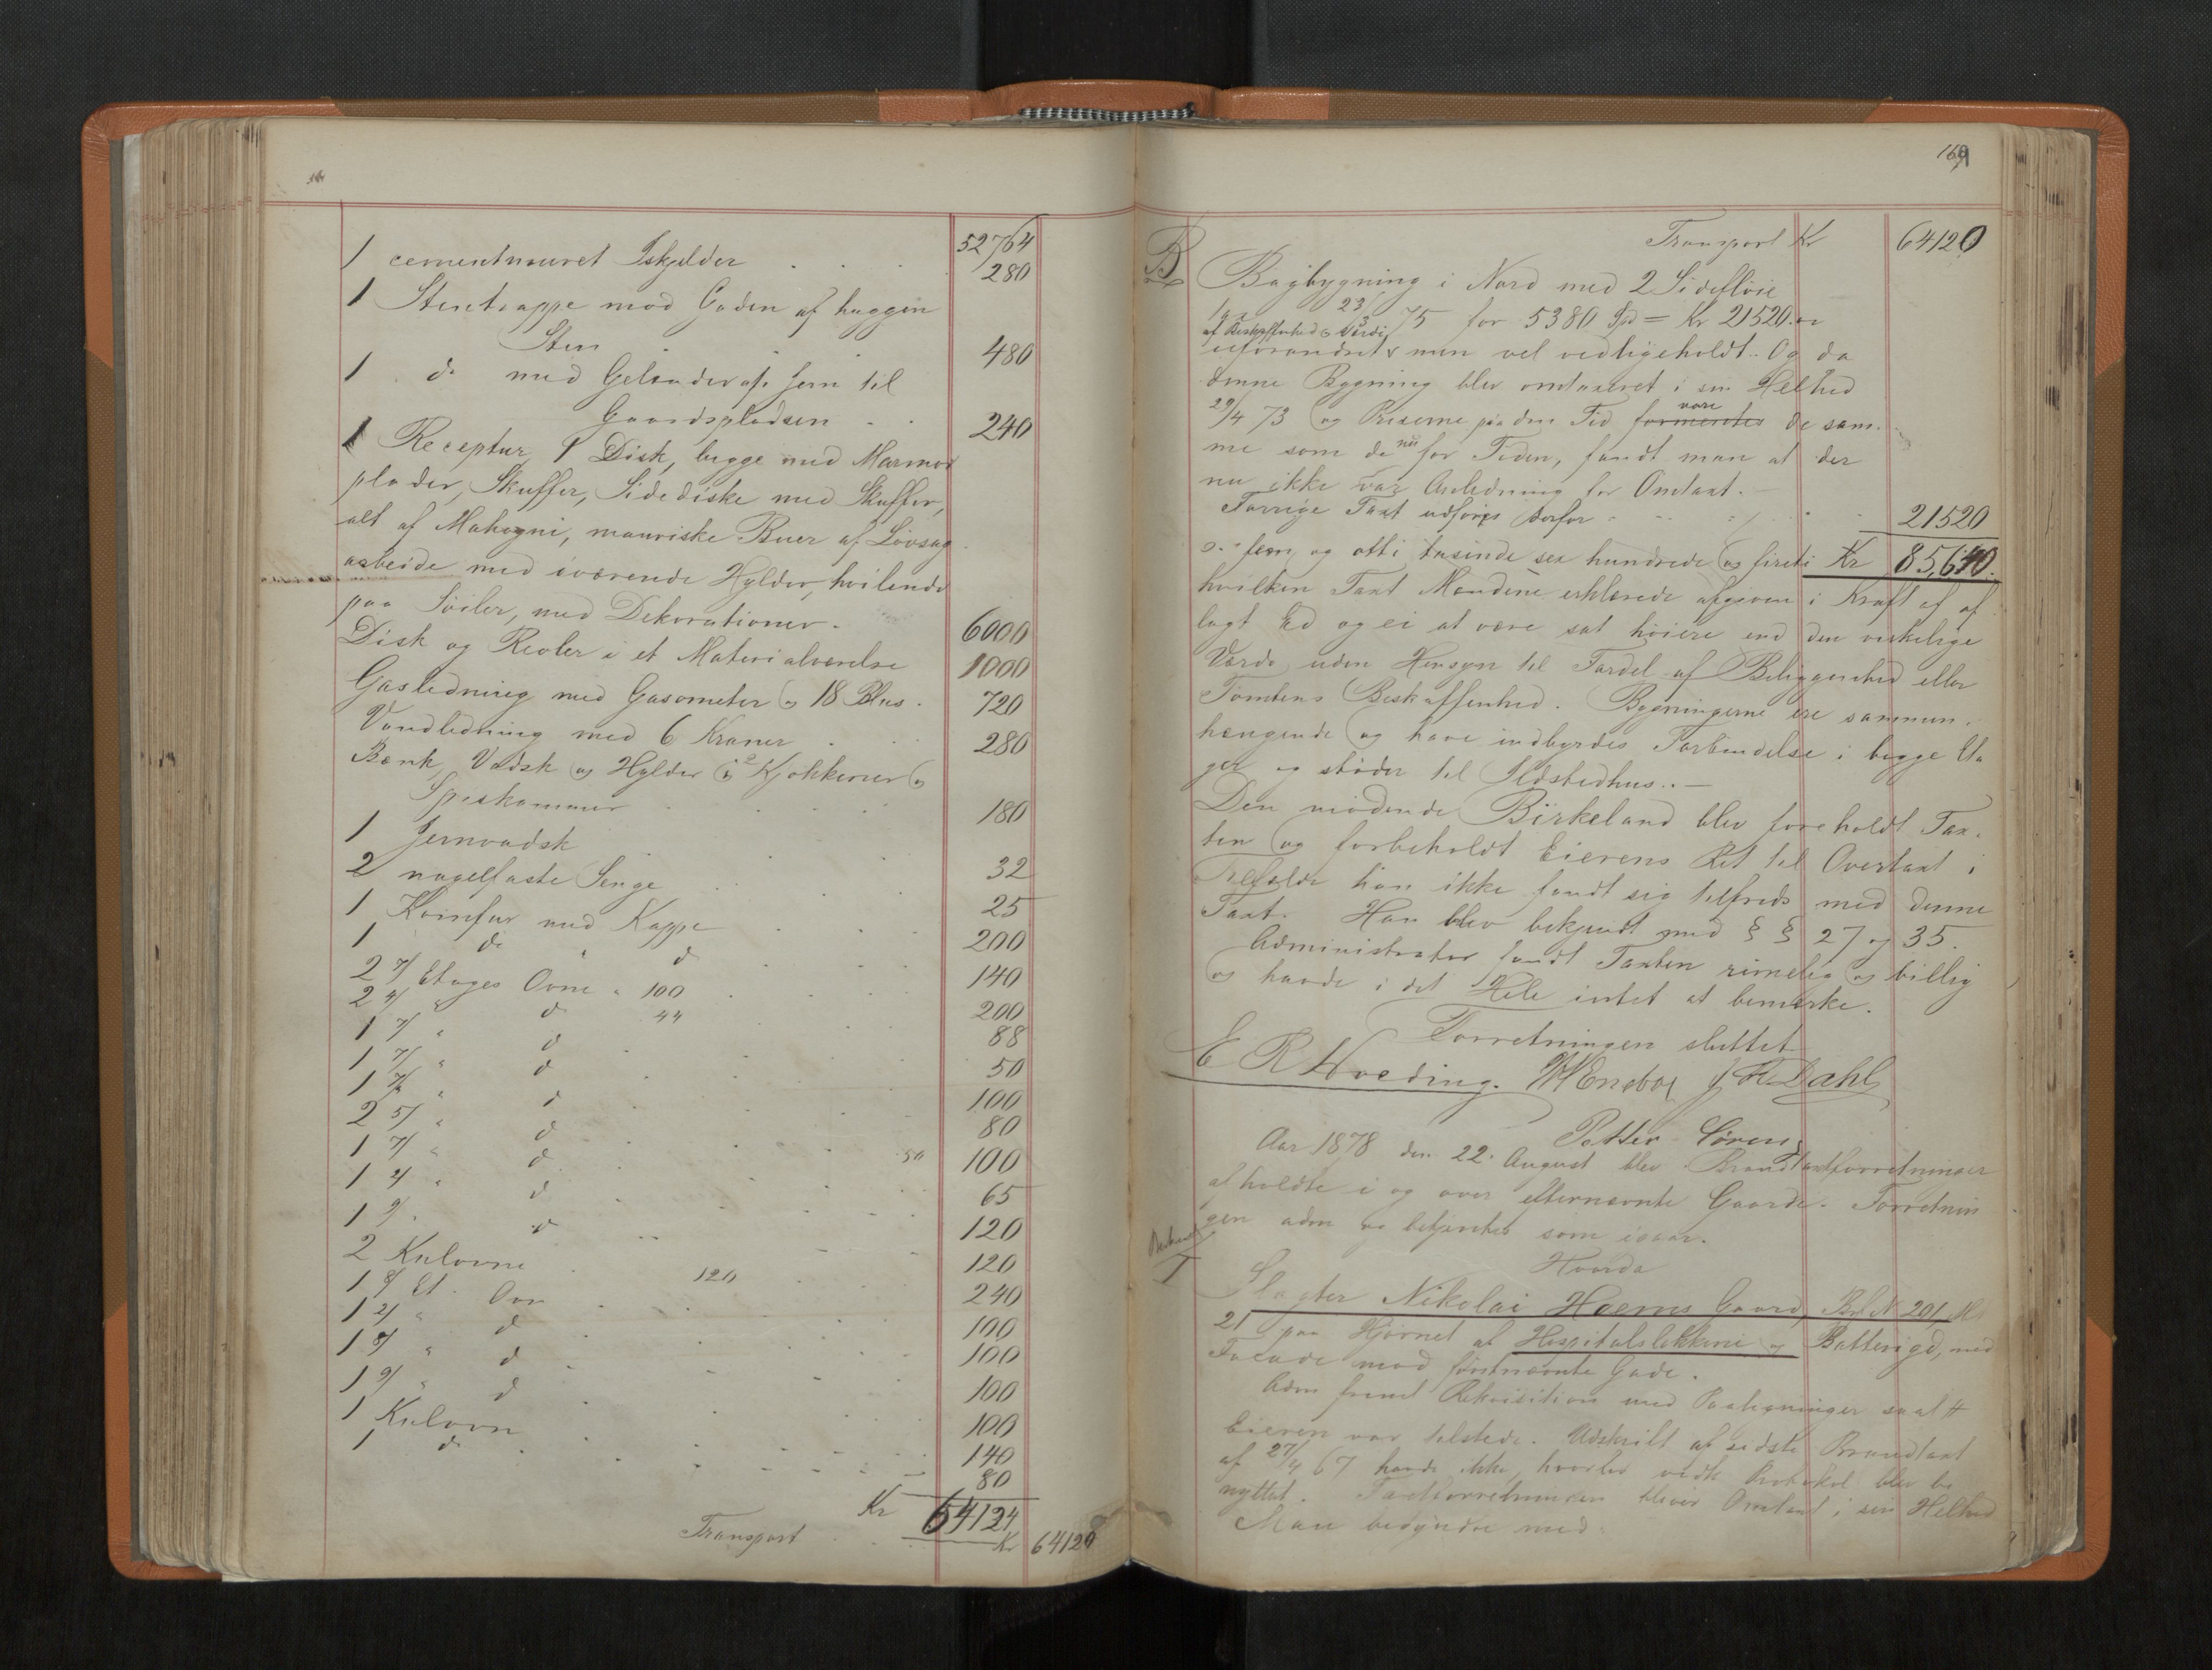 52764
1 cementmuret Iskjelder . . . 280
1 Stentrappe mod Gaden af huggen
Sten . . . 480
1 do med Gelænder af Jern til
Gaardspladsen . . 240
1 Receptur, 1 Disk, begge med Marmor
plader, Skuffer, Sidediske med Skuffer,
alt af Mahogni, mauriske Buer af Løvsag
arbeide med iværende Hylder, hvilende
paa Søiler, med Dekorationer. 6000
Disk og Reoler i et Materialværelse 1000
Gasledning med Gasometer og 18 Blus. 720
Vandledning med 6 Kraner . . 280
Bænk, Vadsk og Hylder i 2 Kjøkkener og
Speskammer . . . 180
1 Jernvadsk . . . 32
2 nagelfaste Senge . . . 25
1 Komfur med Kappe . . . 200
1 do " do . . . 140
2 7/ Etages Ovne " 100 . . . 200
2 4/ " d 44 . . . 88
1 7/ " d . . . 50
1 7/ " d . . . 100
1 7/ " d . . . 80
2 5/ " d . . 50 100
1 7/ " d . . . 65
1 4/ " d . . . 120
1 9/ " d . . . 120
2 Kulovne 120 . . 240
1 8/ Et. Ovn . . . 100
1 2/ " d . . . 100
1 8/ " d . . . 100
1 9/ " d . . . 100
1 Kulovn . . . 140
1 do . . . 80
Kr 64124
Transport . . . Kr 64120
169
Transport Kr 64120
B Bagbygning i Nord med 2 Sidefløie
tax 23/3 75 for 5380 Spd = Kr 21520. er
af Beskaffenhed og Værdi
uforandret men vel vedligeholdt. Og da
denne Bygning blev omtaxeret i sin Helhed
29/4 73 og Priserne paa den Tid formentes vare de sam-
me som de nu for Tiden, fandt man at der
nu ikke var Anledning for Omtaxt. —
Forrige Taxt udføres derfor . . . 21520
fem og otti tusinde sex hundrede og fireti Kr 85,640.
hvilken Taxt Mændene erklærede afgiven i Kraft af af
lagt Ed og ei at være sat høiere end den virkelige
Værdi uden Hensyn til Fordel af Beliggenhed eller
Tomtens Beskaffenhed. Bygningerne ere sammen-
hængende og have indbyrdes Forbindelse i begge Eta
ger og støder til Ildstedhus. —
Den mødende Birkeland blev foreholdt Tax-
ten og forbeholdt Eierens Ret til Overtaxt i
Tilfælde han ikke fandt sig tilfreds med denne
Taxt. Han blev bekjendt med § § 27 og 35.
Administrator fandt Taxten rimelig og billig
og havde i det Hele intet at bemærke.
Forretningen sluttet
E R Hoeding. J R Dahl
Petter Sørens
Aar 1878 den 22. August blev Brandtaxtforretninger
afholdte i og over efternævnte Gaarde. Forretnin
gen adm og betjentes som igaar.
Hvorda
I Slagter Nikolai Hoems Gaard, Br. N 201, M
21 paa Hjørnet af Hospitalsløkkene og Batterigd, med
Facade mod førstnævnte Gade.
Adm freml Rekvisition med Paategninger saal #
Eieren var tilstede. Udskrift af sidste Brandtaxt
af 27/4 67 havde ikke, hvorfor vedk Protokol blev be
nyttet. Taxtforretningen bliver Omtaxt i sin Helhed
Man begyndte med